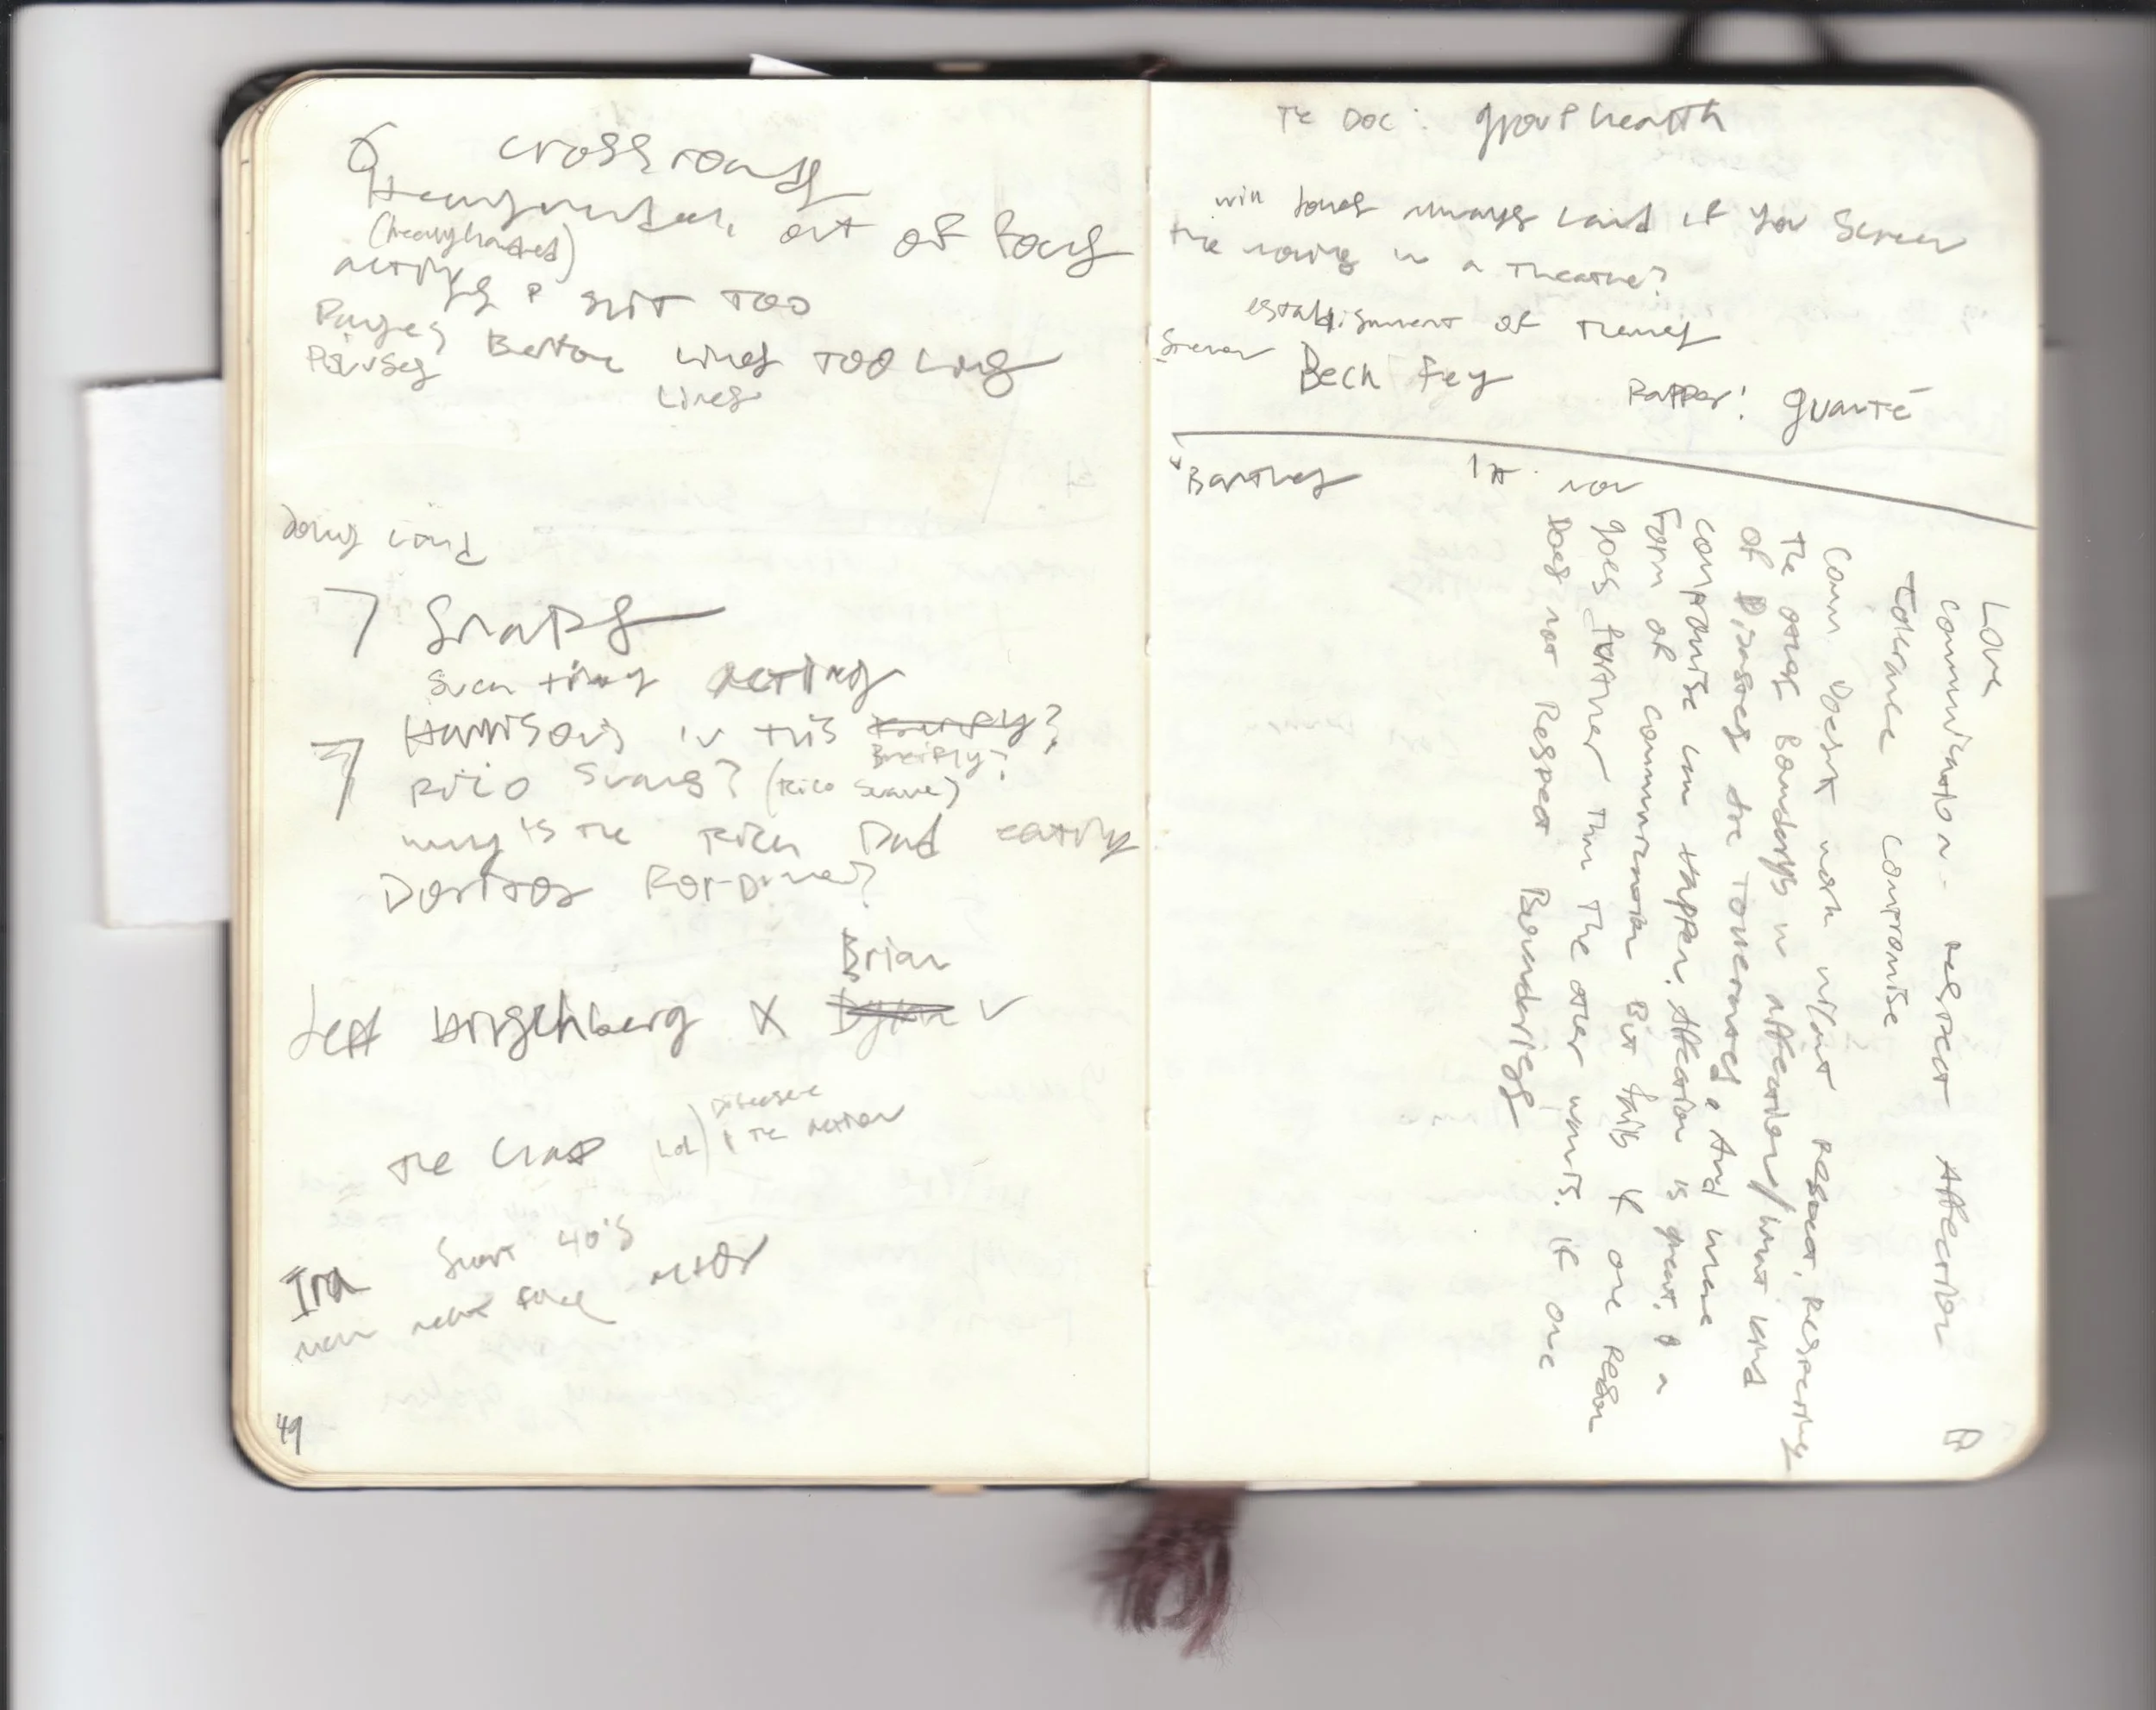 6 crossroads
out of focus
(heavyhanded)
acting & shit too
Pauses Before Lines too long
Pauses
Lines
Song Land
7 Snaps
such thing acting
7 Harrison's in this briefly?
Breifly?
Rico Suave? (Rico Suave)
why is the rich Dad eating
Doritos for Dinner?
Brian
Jeff Hirschberg X Dylan ✓
The Clap Lol) Disease
& the action
Ira Smart 40's actor
new face
49
The Doc: group health
will always Land if you screen
the movie in a theatre?
establishment of themes
Steven Beck Fey Rapper: guante
Barthes
Love
communication - respect Affection
Tolerance compromise
Comm. Doesnt work without respect, respecting
the others Boundarys in affection/what kind
of are Tolerated. And where
compromise can happen. Affection is great. & a
Form of communication But fails if one person
goes further than the other wants. if one
Does not Respect Boundaries